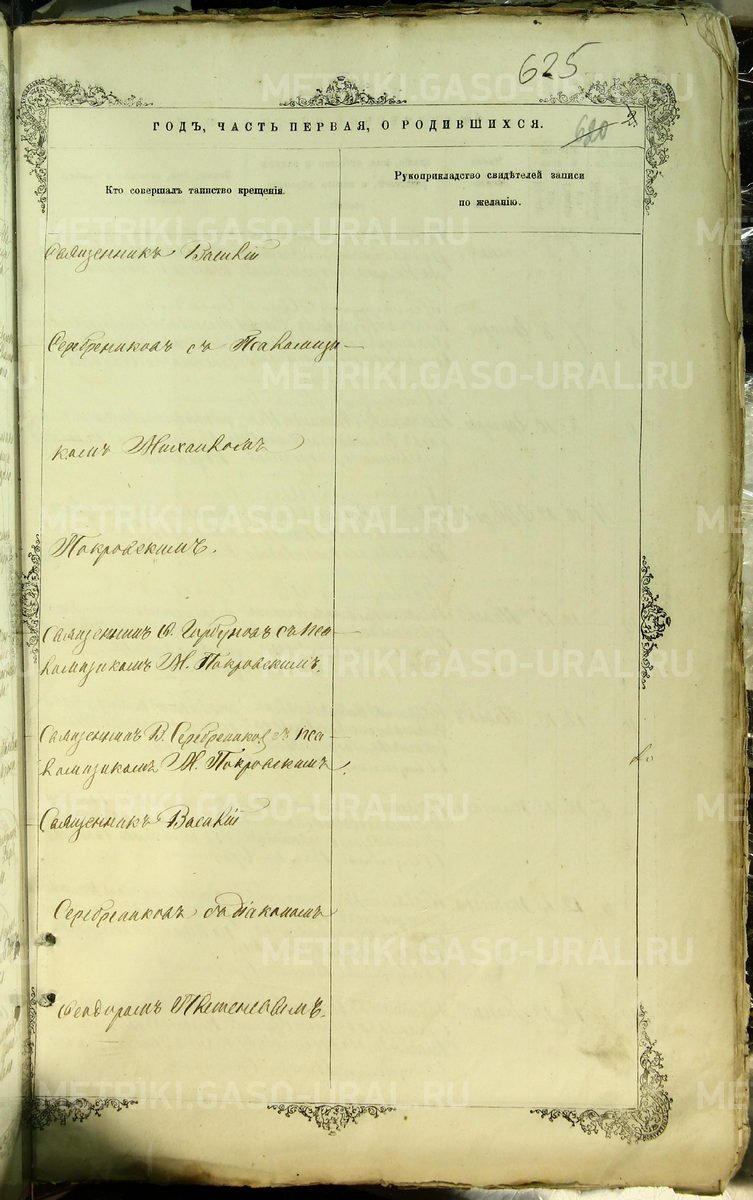 625
ГОДЪ, ЧАСТЬ ПЕРВАЯ, О РОДИВШИХСЯ.
620
2.
Кто совершалъ таинство крещенія.
Рукоприкладство свидѣтелей записи
по желанію.
Священникъ Василій
Серебрениковъ съ Псаломщи-
комъ Михаиломъ
Покровскимъ.
Священникъ Ѳ. Горбуновъ съ Пса-
ломщикомъ М. Покровскимъ.
Священникъ В. Серебрениковъ съ Пса-
ломщикомъ М. Покровскимъ.
Священникъ Василій
Серебрениковъ съ Діакономъ
Ѳеодоромъ
METRIKI.GASO-URAL.RU